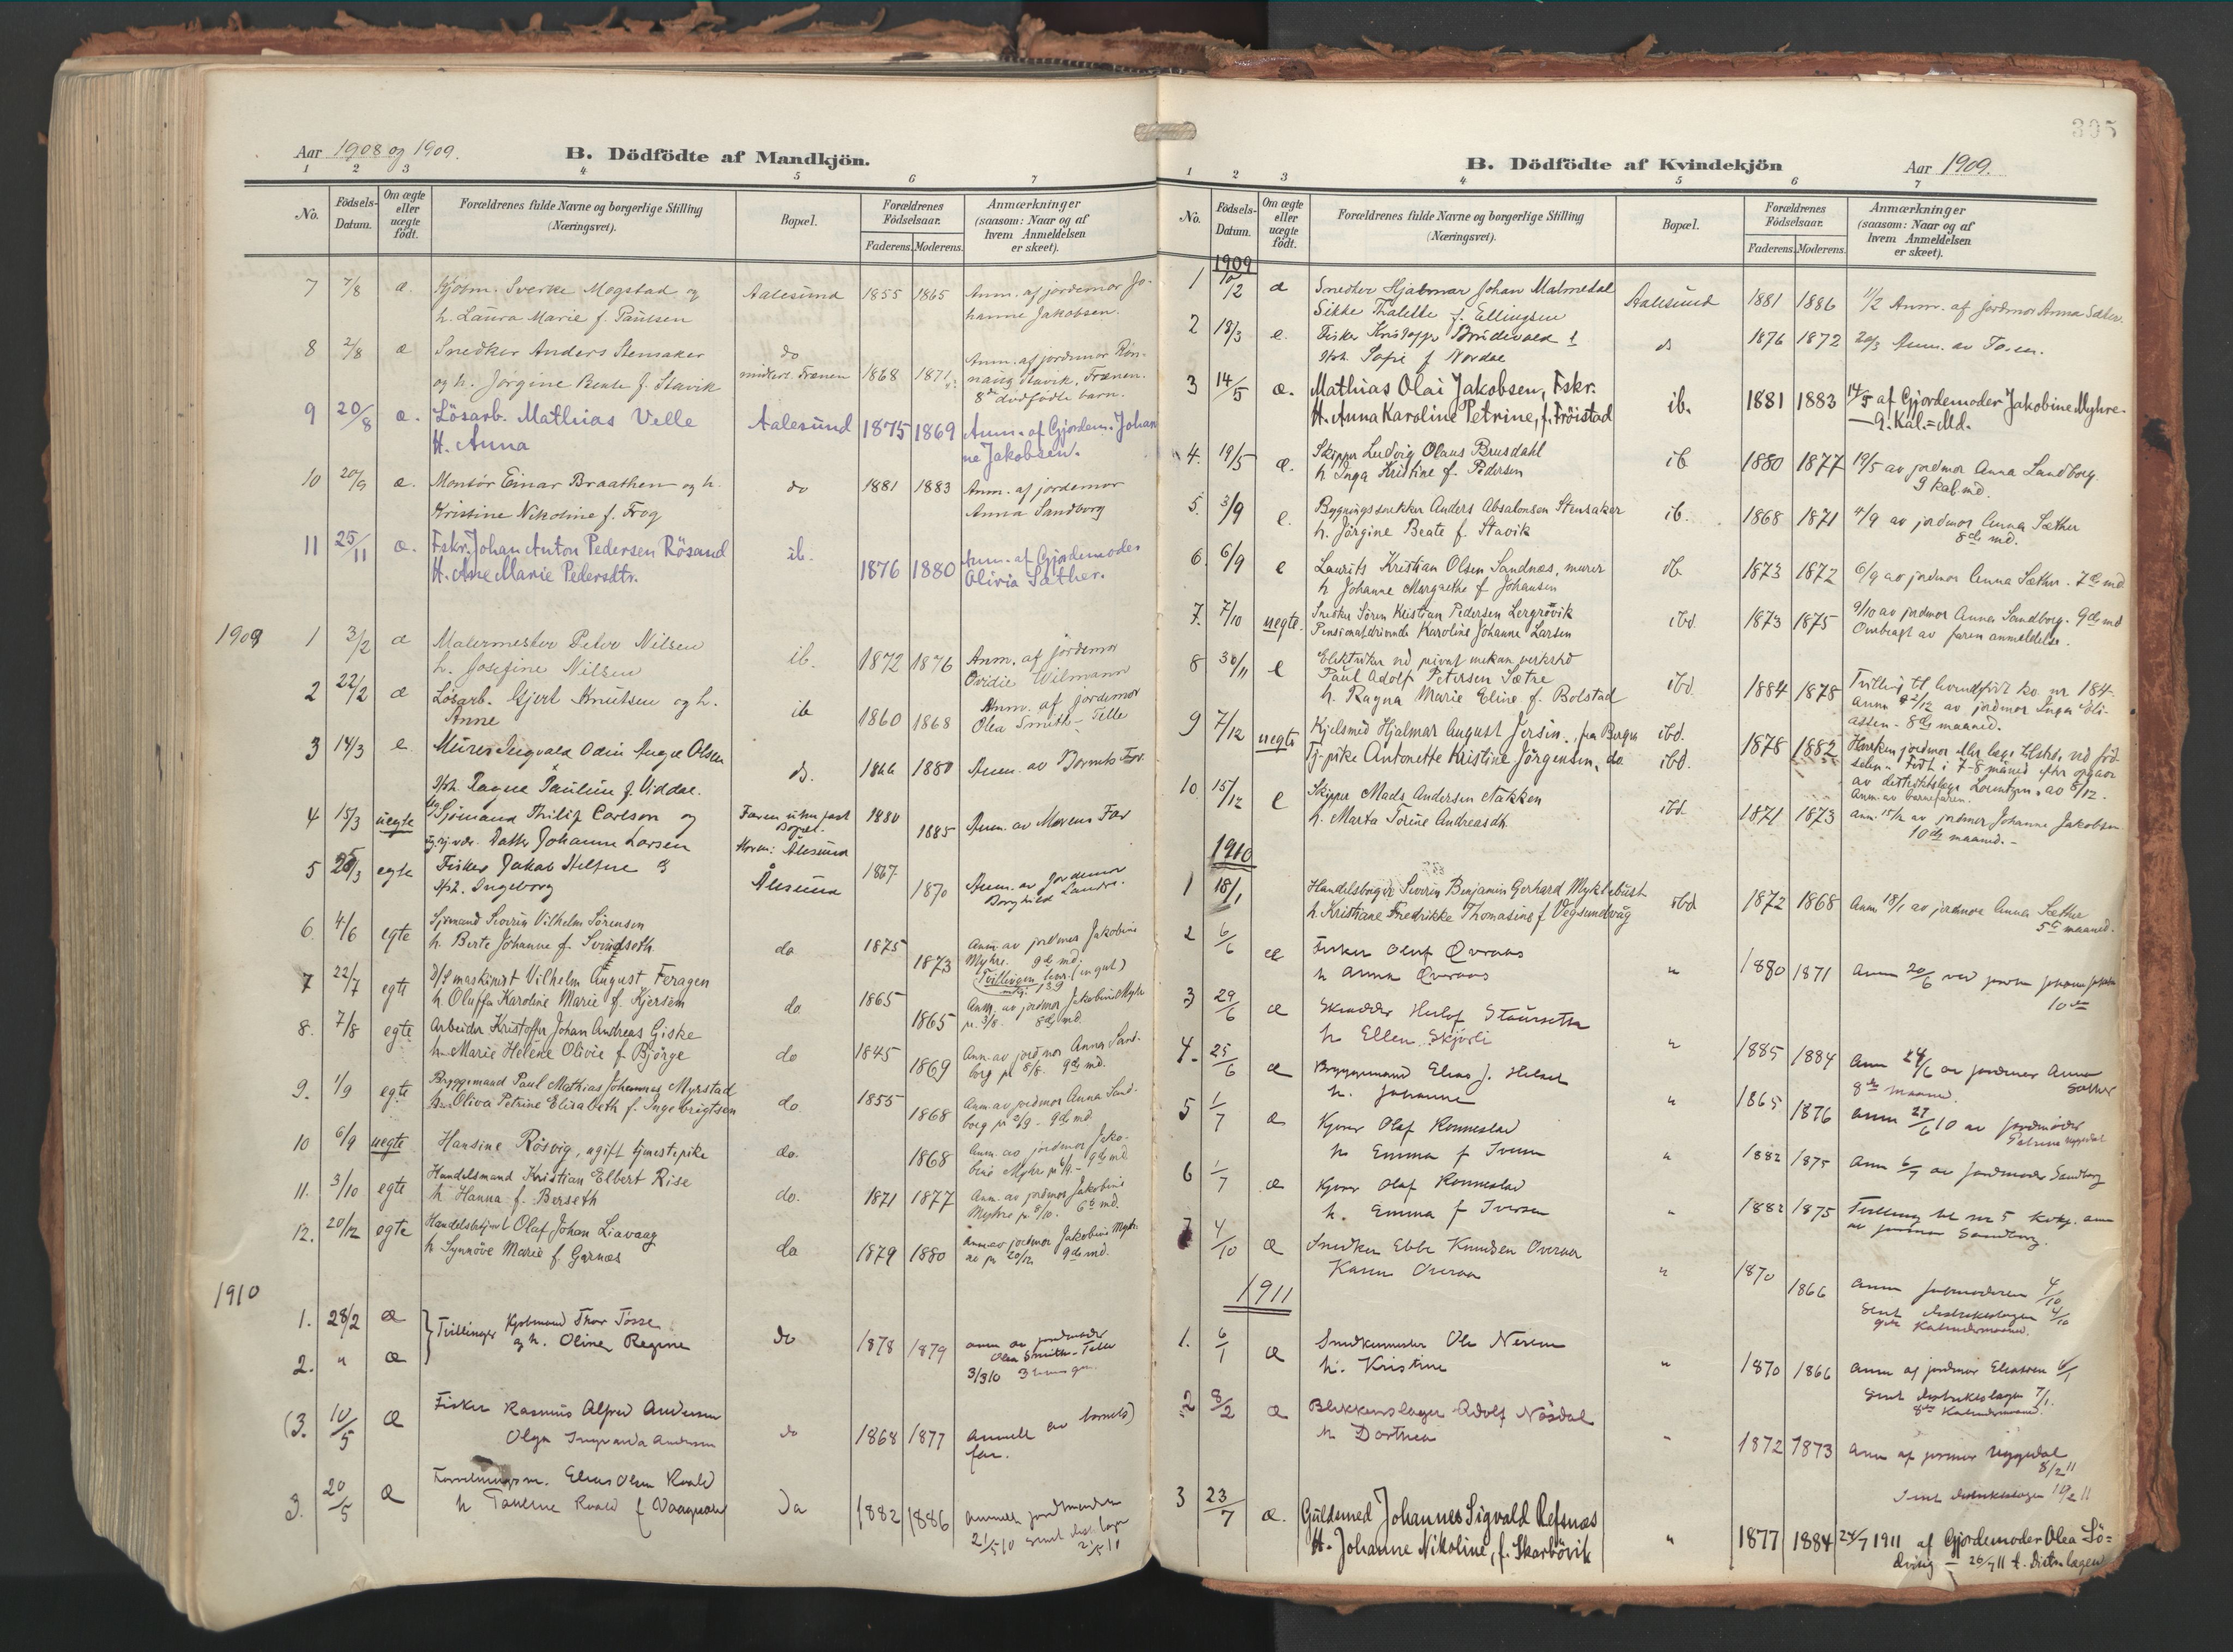 Aar 1908 og 1909.
B. Dödfödte af Mandkjön.
1 2 3 4 5 6 7
No.
Födsels-Datum.
Om ægte eller uægte födt.
Forældrenes fulde Navne og borgerlige Stilling (Næringsvei).
Bopæl.
Forældrenes Födselsaar.
Faderens. Moderens.
Anmærkninger (saasom: Naar og af hvem Anmeldelsen er skeet).
7 7/8 æ. Kjøbm. Sverke Mogstad og Aalesund 1855 1865 Anm. af jordemor Jo-
h. Laura Marie f. Paulsen hanne Jakobsen.
8 2/8 æ Snedker Anders Stensaker do
og h. Jørgine Beate f. Stavik midlert. Frænen 1868 1871 Anm. af jordmor Røn-
naug Stavik, Frænen.
8de dødfødte barn.
9 20/8 æ. Lösarb. Mathias Velle Aalesund 1875 1869 Anm. af Gjordem. Johan
H. Anna ne Jakobsen.
10 20/9 æ. Montör Einar Braathen og h. do 1881 1883 Anm. af jordemor
Kristine Nikoline f. Frog Anna Sandborg
11 25/11 æ. Fskr. Johan Anton Pedersen Rösand ib. 1876 1880 Anm. af Gjordemoder
H. Ane Marie Pedersdtr. Olivia Sæther.
1909
1 3/2 æ Malermester Peter Nilsen ib. 1872 1876 Anm. af jordemor
h. Josefine Nilsen Ovidie Wilmann
2 22/2 æ Lösarb. Gjert Knutsen og h. ib 1860 1868 Anm. af jordemor
Anne Olea Smith-Telle
3 14/3 e. Murer Ingvald Odin August Olsen do. 1880 Anm. av Barnets Far
Ragna Pauline f. Viddal.
4 15/3 uegte Sjømand Philip Carlson og Faren uten fast Bopel. 1880 1885 Anm. av Morens Far
Datter Johanne Larsen Moren: Ålesund
5 egte Fisker Jakob Ålesund 1867 1870 Anm. av Jordemor
Ingeborg
6. 4/6 egte Sjømand Severin Vilhelm Sörensen do 1875 1873 Anm. av jordmor Jakobine
h. Berte Johanne f. Svindseth Myhre. 9de md.
7 22/7 egte D/S maskinist Vilhelm August Feragen do. 1865 1865 Anm. av jordmor Jakobine Myhr
h. Oluffa Karoline Marie f. Kjersem
8. 7/8 egte Arbeider Kristoffer Johan Andreas Giske do 1845 1869 Anm. av jordmor Anna Sand-
h. Marie Helene Olivie f. Bjørge borg pr 8/8. 9de md.
9. 1/9 egte Bryggemand Paul Mathias Johannes Myrstad do. 1855 1868 Anm. av jordmor Anna Sand-
Oliva Petrine Elisabeth f. Ingebrigtsen borg pr 2/9 - 9de md
10 6/9 uegte Hansine Rösvig, ugift tjenestepike do. 1868 Anm. av jordmor Jako-
bine Myhre 9de md
11. 3/10 egte Handelsmand Kristian Elbert Rise do. 1871 1877 Anm. av jordmor Jakobine
h. Hanna f. Berseth Myhre 6te md.
12. 20/12 egte Handelsbetjent Olaf Johan Liavaag do 1879 1880 Anm av jordmor Jakobine Myh-
h. Synnöve Marie f. Garnæs re pr 20/12 9de md.
1910
1. 28/2 æ Tvillinger Kjøbmand Thor Tosse do 1878 1879 anm av jordmoder
2. " æ og h. Oline Regine Olea Smith-Telle
3/3 10
(3. 10/5 æ Fisker Rasmus Alfred Andersen do 1868 1877 anmeldt av barnets)
Olga Andersen far.
3. 20/5 æ Elias Olsen Roald Do 1882 1886
h Roald f
305
B. Dödfödte af Kvindekjön
Aar 1909.
1 2 3 4 5 6 7
No.
Födsels-Datum.
Om ægte eller uægte födt.
Forældrenes fulde Navne og borgerlige Stilling (Næringsvei).
Bopæl.
Forældrenes Födselsaar.
Faderens. Moderens.
Anmærkninger (saasom: Naar og af hvem Anmeldelsen er skeet).
1909
1 10/2 æ Snedker Hjalmar Johan Malmedal Aalesund 1881 1886 11/2 Anm. af jordmor Anna Sæther.
Sikke Talette f. Ellingsen
2 18/3 e. Fisker Kristoffer do 1876 1872 20/3 Anm. av
Sofie f. Nordal
3 14/5 æ. Mathias Olai Jakobsen, Fskr. ib. 1881 1883 14/5 af Gjordemoder Jakobine Myhre.
H. Anna Karoline Petrine, f. Fröistad 9. Kal.=Md.
4. 19/5 æ. Skipper Ludvig Olaus Brusdahl ib 1880 1877 19/5 av jordmor Anna Sandborg
h Inga Kristine f. Pedersen 9 kal. md.
5. 3/9 e. Bygningssnekker Anders Absalonsen Stensaker ib. 1868 1871 4/9 av jordmor Anna Sæther
h. Jörgine Beate f. Stavik 8de md.
6. 6/9 e Laurits Kristian Olsen Sandnæs, murer ib. 1873 1872 6/9 av jordmor Anna Sæther. 7de md
h Johanne Margrethe f Johansen
7. 7/10 uegte. Snedker Sören Kristian Pedersen Lergrövik ibd 1873 1875 9/10 av jordmor Anna Sandborg. 9de md
Pensionatdrivende Karoline Johanne Larsen Ombragt av faren anmeldelse.
8 30/11 e Elektriker ved privat mekan. verksted
Paul Adolf Petersen Sætre ibd. 1884 1878 Tvilling til levendefødt ko. nr 184.
h. Ragna Marie Eline f. Bolstad Anm 2/12 av jordmor Inga Eli-
assen - 8de maaned.
9 7/12 uegte Kjelsmed Hjalmar August Jersin, fra Bergen ibd. 1878 1882 Hverken jordmor eller læge tilstede ved föd-
Tj.pike Antonette Kristine Jörgensen, do ibd. selen. Født i 7-8 måned efter opgave
av distriktslæge Lorentzen av 8/12.
Anm. av barnefaren.
10. 15/12 e Skipper Mads Andersen Nakken ibd. 1871 1873 anm. 15/12 av jordmor Johanne Jakobsen
h. Marta Torine Andreasdtr. 10de maaned.-
1910
1 18/1 Handelsborger Severin Benjamin Gerhard Myklebust ibd 1872 1868 Anm 18/1 av jordmor Anna Sæther
h. Kristiane Fredrikke Thomasine f. Vegsundvåg 5te maaned.
2 6/6 æ Fisker Oluf Qvraas " 1880 1871 Anm 20/6 ved
h Anna Qvraas
3 29/6 æ Skrædder Herlof Staursetta " 1885 1884 Anm 24/6 av jordmor Anna Sæther
h Ellen Skjørli 8de maaned.
4. 25/6 æ Bryggemand Elias J. Helset " 1865 1876 anm 27/6 10 av jordmoder
h. Johanne Petrine Uggedal
5 1/7 æ Kjører Olaf Ronnestad " 1882 1875 Anm 6/7 av jordmoder Sandborg
h Emma f Iversen
6 1/7 æ Kjører Olaf Ronnestad " 1882 1875 Tvilling til nr 5 kvkj. anm
h. Emma f Iversen av jordmor Sandborg.
7 4/10 æ Snedker Ebbe Knudsen Overaa " 1870 1866 Anm jordmoderen 4/10
Karen Overaa Sent distriktslægen 4/10
1911
1. 6/1 æ Snedkermester Ole Nerem " 1870 1866 Anm af jordmor Eliassen 6/1
h. Kristine Sent distriktslægen 7/1.
2 8/2 æ Blikkenslager Adolf Nösdal " 1872 1873 Anm af jormor Uggedal
h Dorthea 8/2 11
Sent distriktslægen 10/2 11
3 23/7 æ. Guldsmed Johannes Sigvald Refsnæs " 1877 1884 24/7 1911 af Gjordemoder Olea Lö-
H. Johanne Nikoline, f. Skarbövik dvig - 26/7 11 t. Distr. lægen